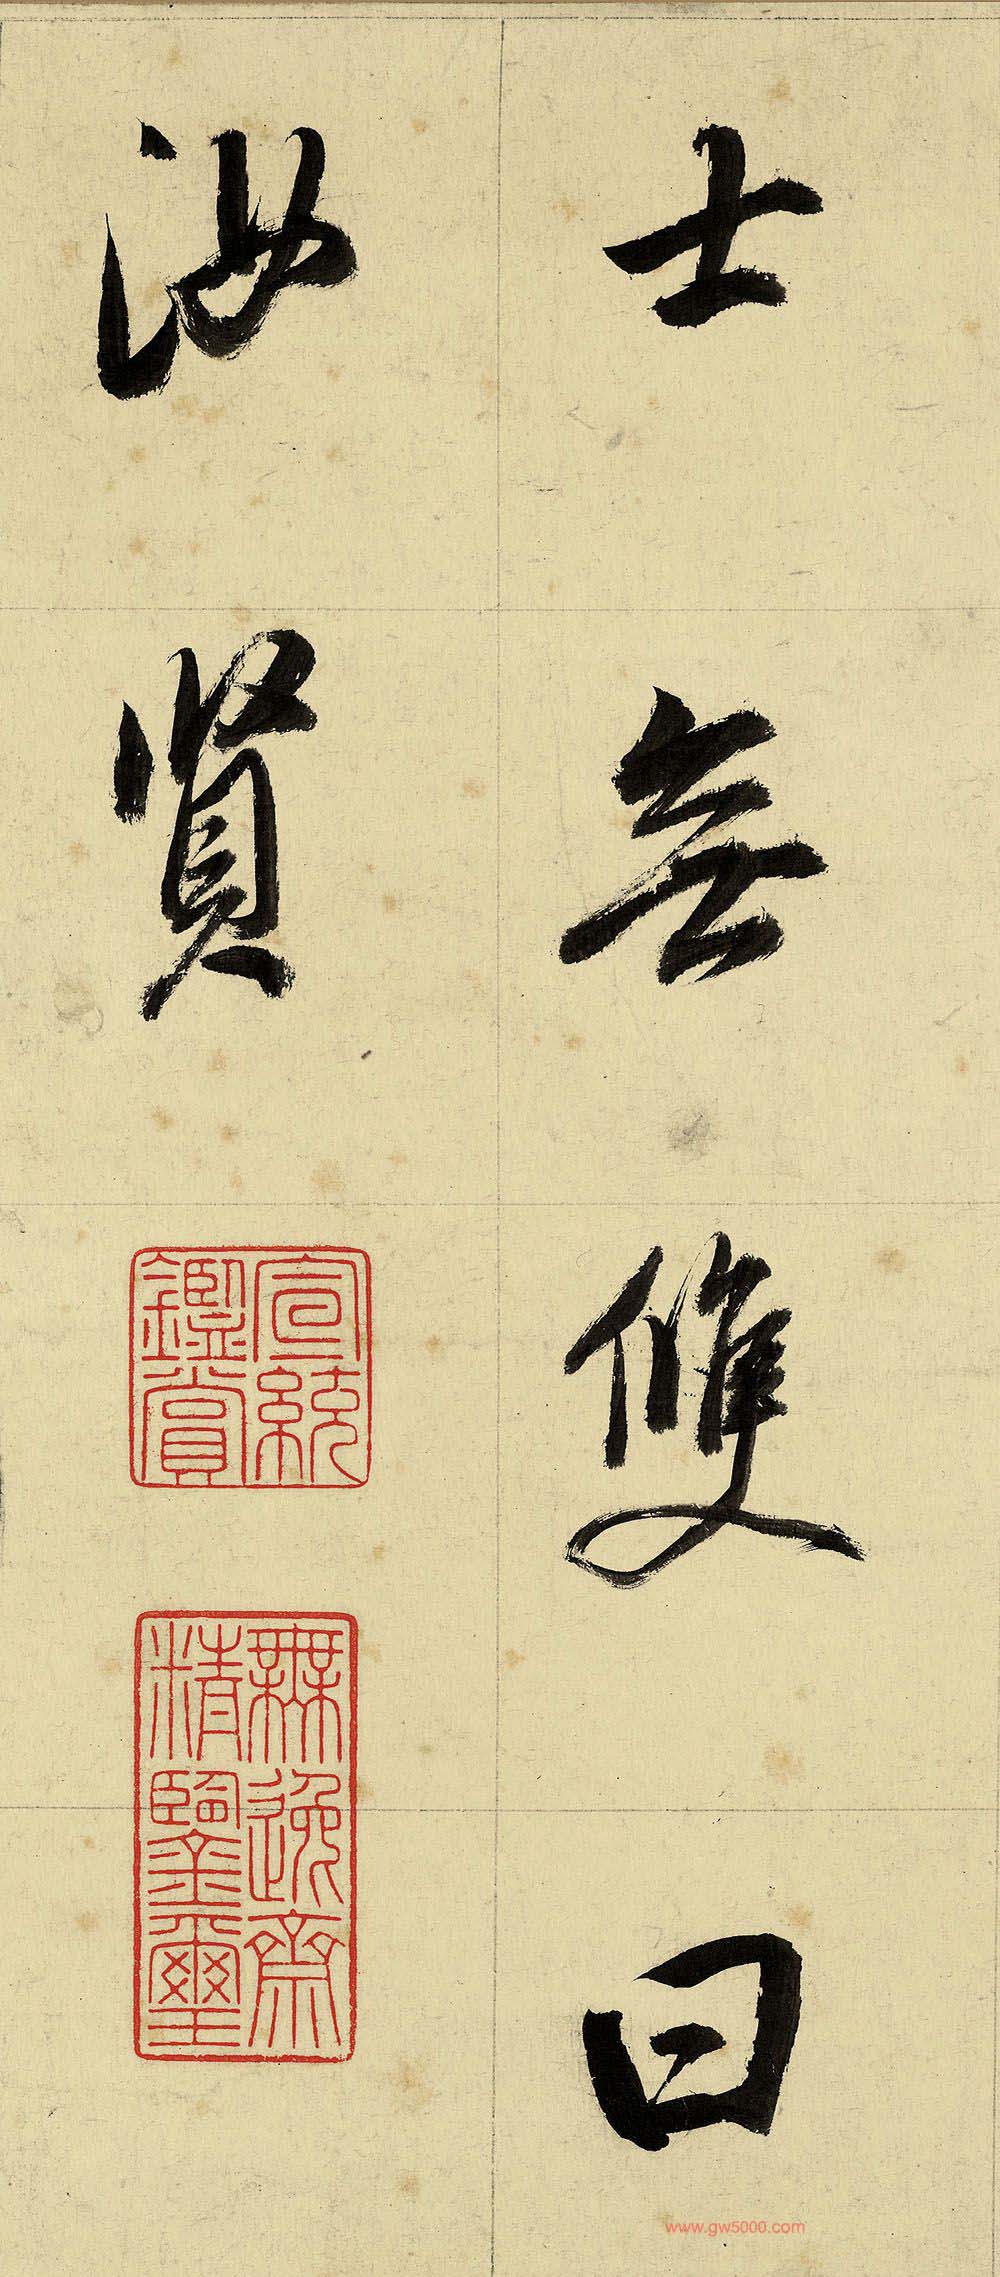 士無雙曰
汝賢
宣統鑑賞
無逸齋精鑒璽
www.gw5000.com